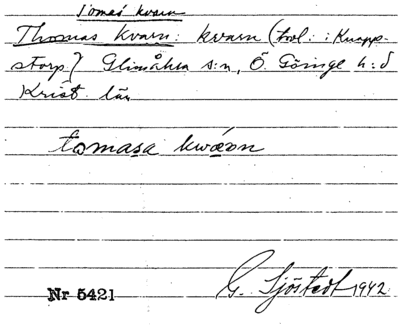 Tomas kvarn
Thomas kvarn: kvarn (trol.: Knapp-
storp) Glimåkra s:n, Ö. Göinge h:d
Krist. län
tomasa kwárn
Nr 5421 G. Sjöstedt 1942